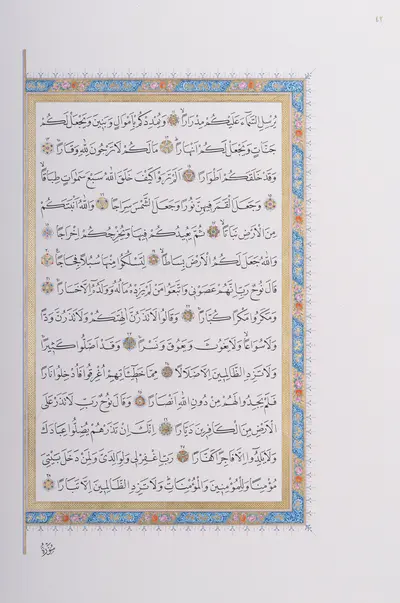 ٤٢
يُرْسِلِ السَّمَاءَ عَلَيْكُمْ مِدْرَارًا ۝ وَيُمْدِدْكُمْ بِأَمْوَالٍ وَبَنِينَ وَيَجْعَلْ لَكُمْ
جَنَّاتٍ وَيَجْعَلْ لَكُمْ أَنْهَارًا ۝ مَا لَكُمْ لَا تَرْجُونَ لِلَّهِ وَقَارًا ۝
وَقَدْ خَلَقَكُمْ أَطْوَارًا ۝ أَلَمْ تَرَوْا كَيْفَ خَلَقَ اللَّهُ سَبْعَ سَمَوَاتٍ طِبَاقًا
۝ وَجَعَلَ الْقَمَرَ فِيهِنَّ نُورًا وَجَعَلَ الشَّمْسَ سِرَاجًا ۝ وَاللَّهُ أَنْبَتَكُمْ
مِنَ الْأَرْضِ نَبَاتًا ۝ ثُمَّ يُعِيدُكُمْ فِيهَا وَيُخْرِجُكُمْ إِخْرَاجًا ۝
وَاللَّهُ جَعَلَ لَكُمُ الْأَرْضَ بِسَاطًا ۝ لِتَسْلُكُوا مِنْهَا سُبُلًا فِجَاجًا ۝
قَالَ نُوحٌ رَبِّ إِنَّهُمْ عَصَوْنِي وَاتَّبَعُوا مَنْ لَمْ يَزِدْهُ مَالُهُ وَوَلَدُهُ إِلَّا خَسَارًا ۝
وَمَكَرُوا مَكْرًا كُبَّارًا ۝ وَقَالُوا لَا تَذَرُنَّ آلِهَتَكُمْ وَلَا تَذَرُنَّ وَدًّا
وَلَا سُوَاعًا وَلَا يَغُوثَ وَيَعُوقَ وَنَسْرًا ۝ وَقَدْ أَضَلُّوا كَثِيرًا
وَلَا تَزِدِ الظَّالِمِينَ إِلَّا ضَلَالًا ۝ مِمَّا خَطِيئَاتِهِمْ أُغْرِقُوا فَأُدْخِلُوا نَارًا
فَلَمْ يَجِدُوا لَهُمْ مِنْ دُونِ اللَّهِ أَنْصَارًا ۝ وَقَالَ نُوحٌ رَبِّ لَا تَذَرْ عَلَى
الْأَرْضِ مِنَ الْكَافِرِينَ دَيَّارًا ۝ إِنَّكَ إِنْ تَذَرْهُمْ يُضِلُّوا عِبَادَكَ
وَلَا يَلِدُوا إِلَّا فَاجِرًا كَفَّارًا ۝ رَبِّ اغْفِرْ لِي وَلِوَالِدَيَّ وَلِمَنْ دَخَلَ بَيْتِيَ
مُؤْمِنًا وَلِلْمُؤْمِنِينَ وَالْمُؤْمِنَاتِ وَلَا تَزِدِ الظَّالِمِينَ إِلَّا تَبَارًا ۝
سُورَةُ